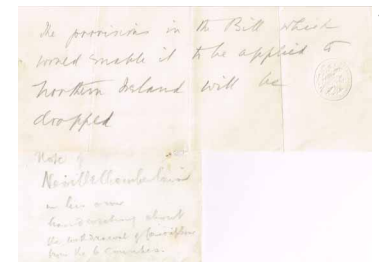 The provisions in the Bill which
would enable it to be applied to
Northern Ireland will be
dropped
Note of
Neville Chamberlain
in his own
handwriting about
the withdrawal of conscription
from the 6 counties.